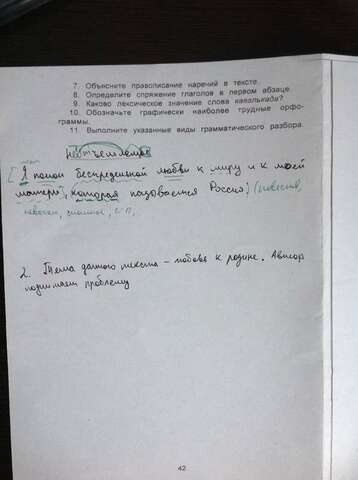 7. Объясните правописание наречий в тексте.
8. Определите спряжение глаголов в первом абзаце.
9. Каково лексическое значение слова кавалькада?
10. Обозначьте графически наиболее трудные орфо-
граммы.
11. Выполните указанные виды грамматического разбора.
[Я полон беспредельной любви к миру и к моей
матери], (которая называется Россия) (повеств,
невоскл, сложное, СП,
2. Тема данного текста – любовь к родине. Автор
поднимает проблему
42